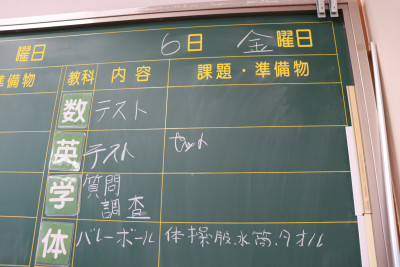 曜日 6日 金曜日
準備物 教科 内容 課題・準備物
数 テスト
英 テスト セット
学 質問
調査
体 バレーボール 体操服、水筒、タオル